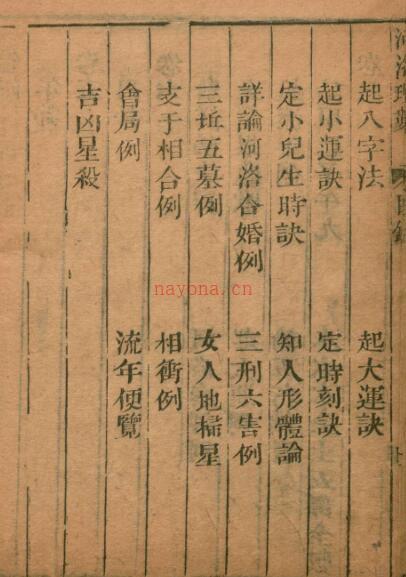 起八字法　起大運訣
起小運訣　定時刻訣
定小兒生時訣　知人形體論
詳論河洛合婚例　三刑六害例
三坵五墓例　女人地掃星
支干相合例　相衝例
會局例　流年便覽
吉凶星殺
nayona.cn